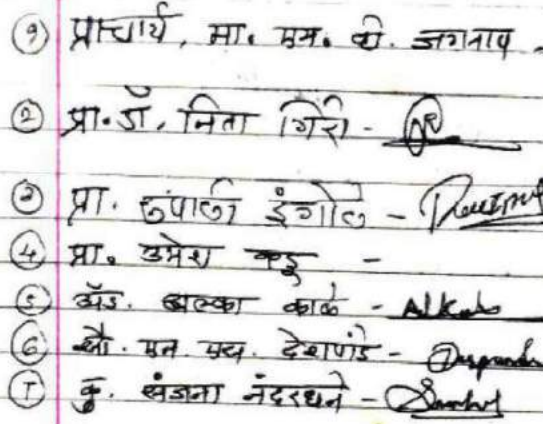 ① प्राचार्य, मा. एम. व्ही. जगताप -
② प्रा. डॉ. निता गिरी -
③ प्रा. रुपाली इंगोले -
④ प्रा. उमेश कडू -
⑤ अॅड. अलका काळे - Alkal
⑥ श्री. एन. एच. देशपांडे - Deshpande
⑦ कु. संजना नंदरधने -